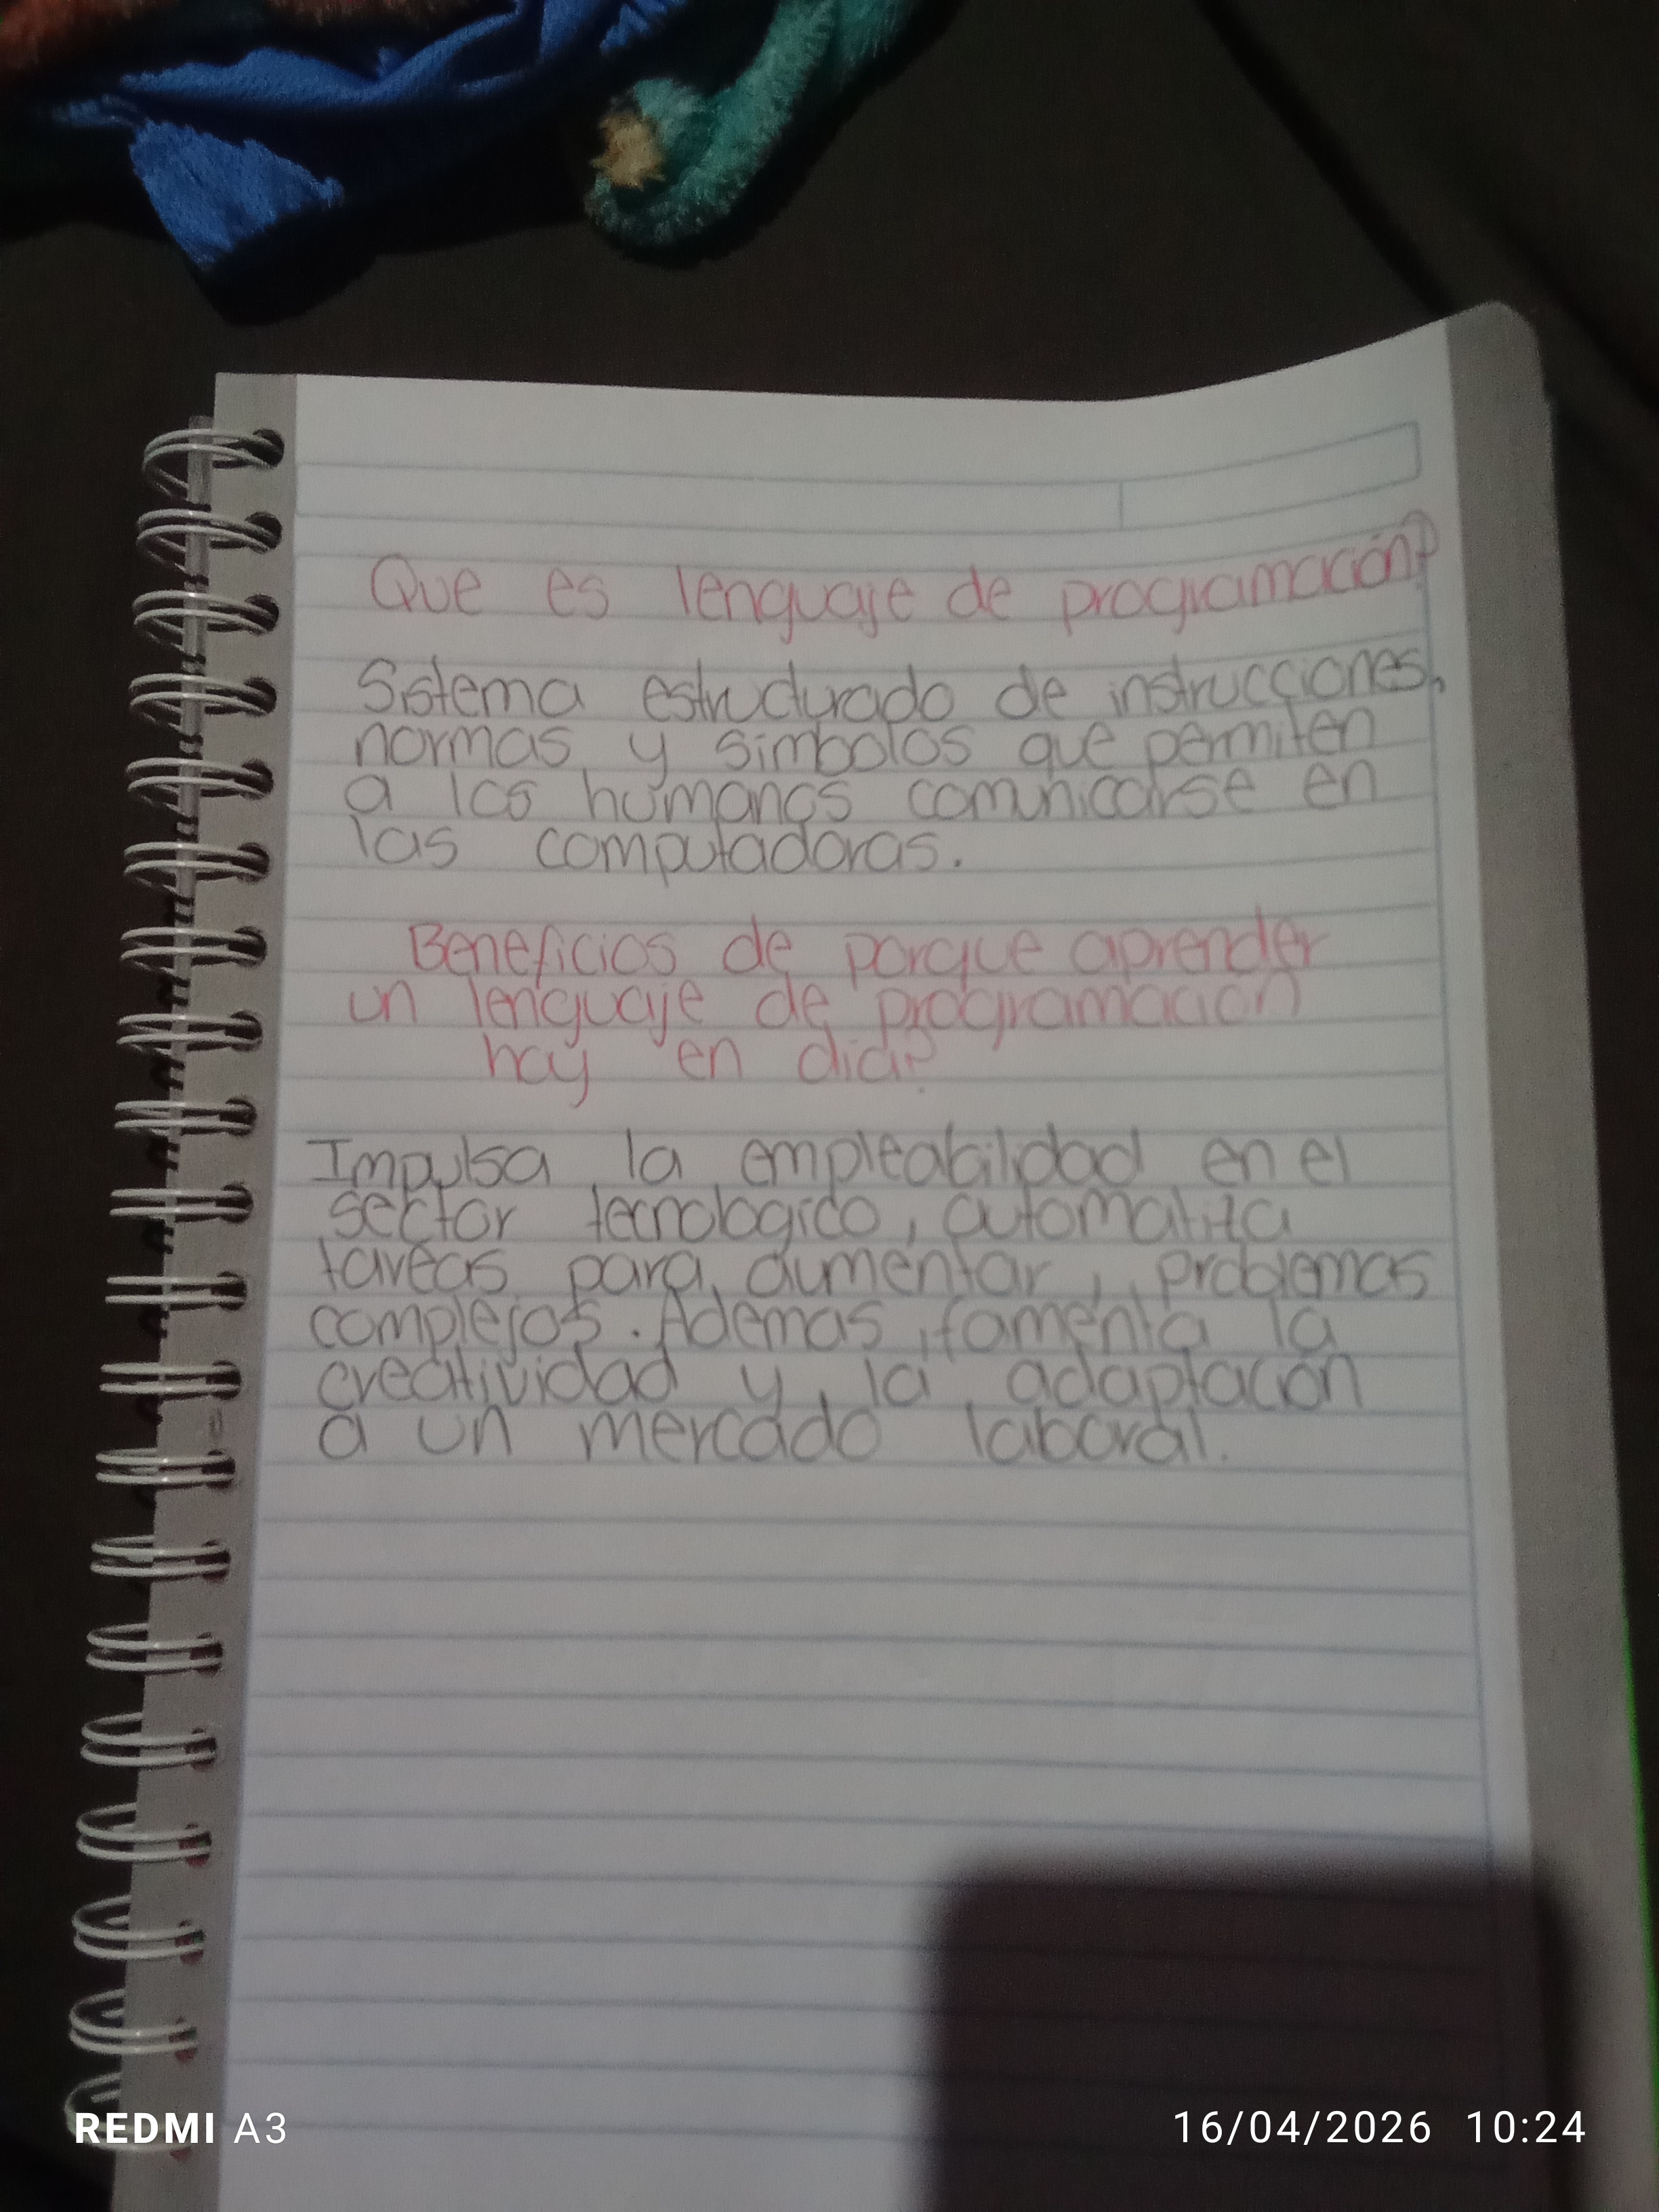 Que es lenguaje de programación?
Sistema estructurado de instrucciones,
normas y simbolos que permiten
a los humanos comunicarse en
las computadoras.
Beneficios de porque aprender
un lenguaje de programación
hay en dia?
Impulsa la empleabilidad en el
sector tecnologico, automatiza
tareas para aumentar, problemas
complejos. Ademas, famenta la
creatividad y la adaptación
a un mercado laboral.
REDMI A3
16/04/2026 10:24